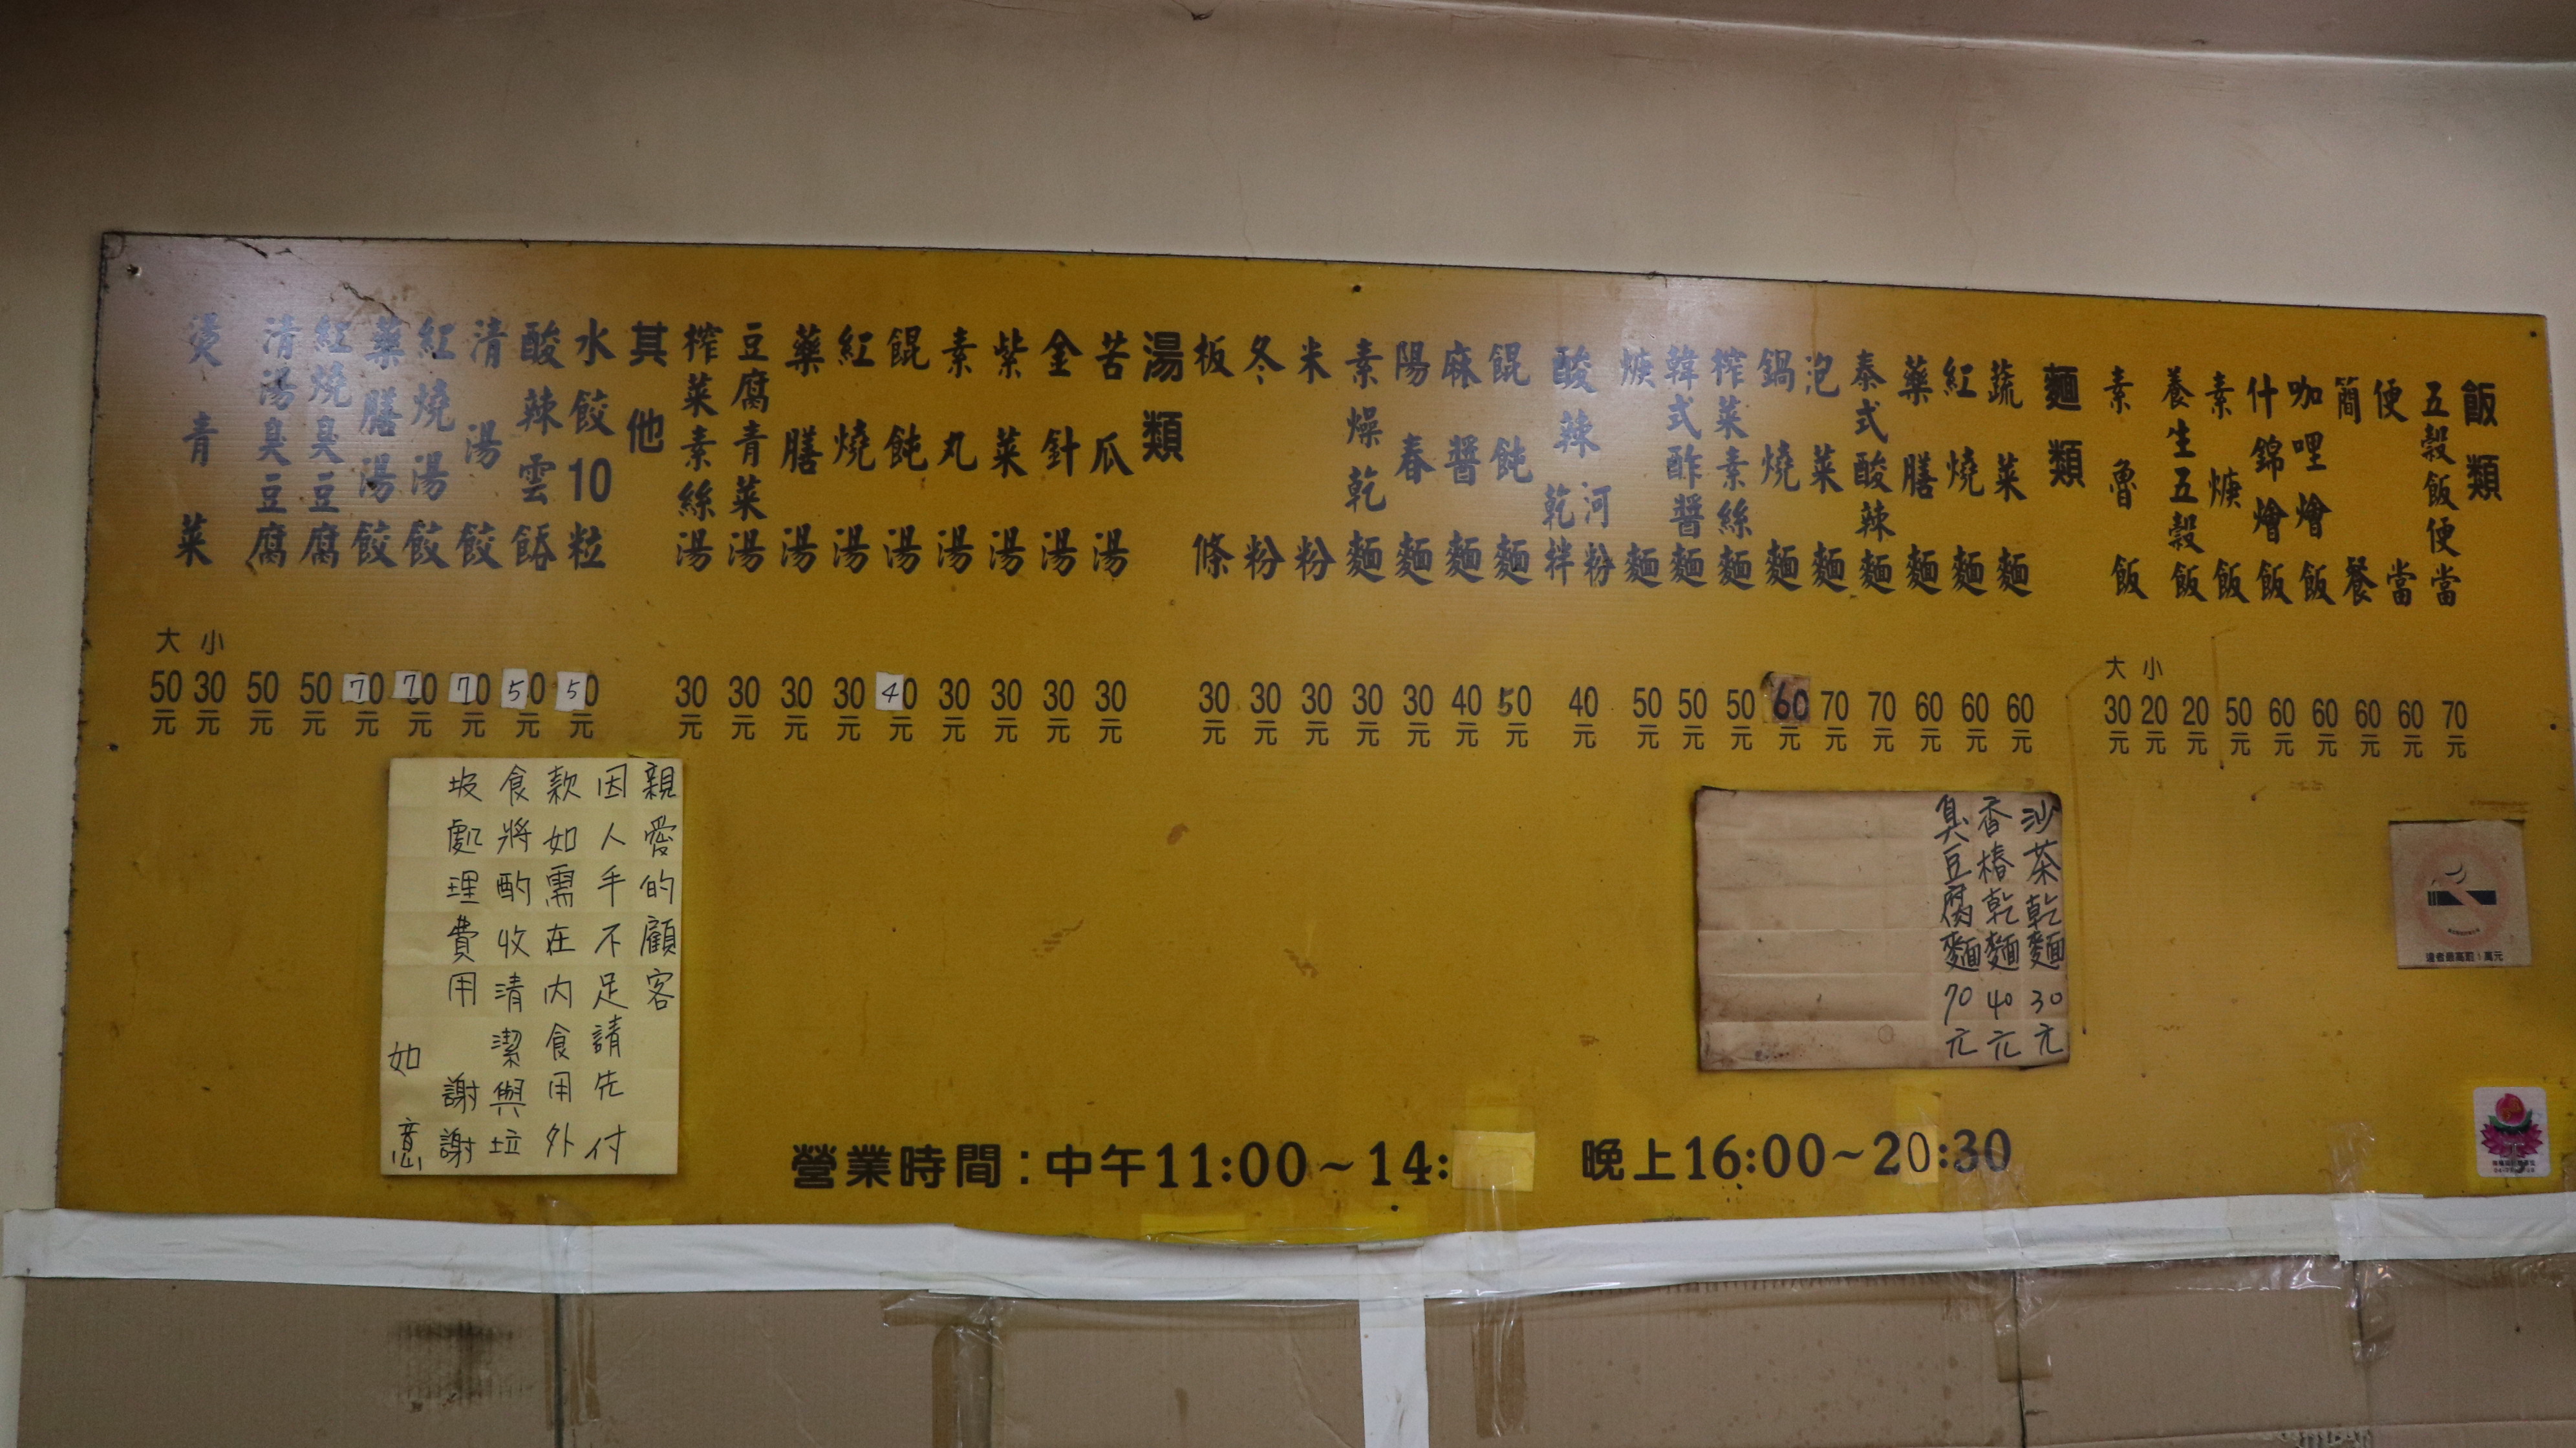 飯類
五穀飯便當 70元
便當 60元
簡餐 60元
咖哩燴飯 60元
什錦燴飯 60元
素焿飯 50元
養生五穀飯 20元
素魯飯 大30元 小20元
麵類
蔬菜麵 60元
紅燒麵 60元
藥膳麵 60元
泰式酸辣麵 70元
泡菜麵 70元
鍋燒麵 60元
榨菜素絲麵 50元
韓式酢醬麵 50元
焿麵 50元
酸辣乾拌河粉 40元
餛飩麵 50元
麻醬麵 40元
陽春麵 30元
素燥乾麵 30元
米粉 30元
冬粉 30元
板條 30元
湯類
苦瓜湯 30元
金針湯 30元
紫菜湯 30元
素丸湯 30元
餛飩湯 40元
紅燒湯 30元
藥膳湯 30元
豆腐青菜湯 30元
榨菜素絲湯 30元
其他
水餃10粒 50元
酸辣雲餙 50元
清湯餃 70元
紅燒湯餃 70元
藥膳湯餃 70元
紅燒臭豆腐 50元
清湯臭豆腐 50元
燙青菜 大50元 小30元
沙茶乾麵30元
香椿乾麵40元
臭豆腐麵70元
親愛的顧客
因人手不足請先付
款如需在內食用外
食將酌收清潔與垃
圾處理費用 謝謝
如意
營業時間:中午11:00~14: 晚上16:00~20:30